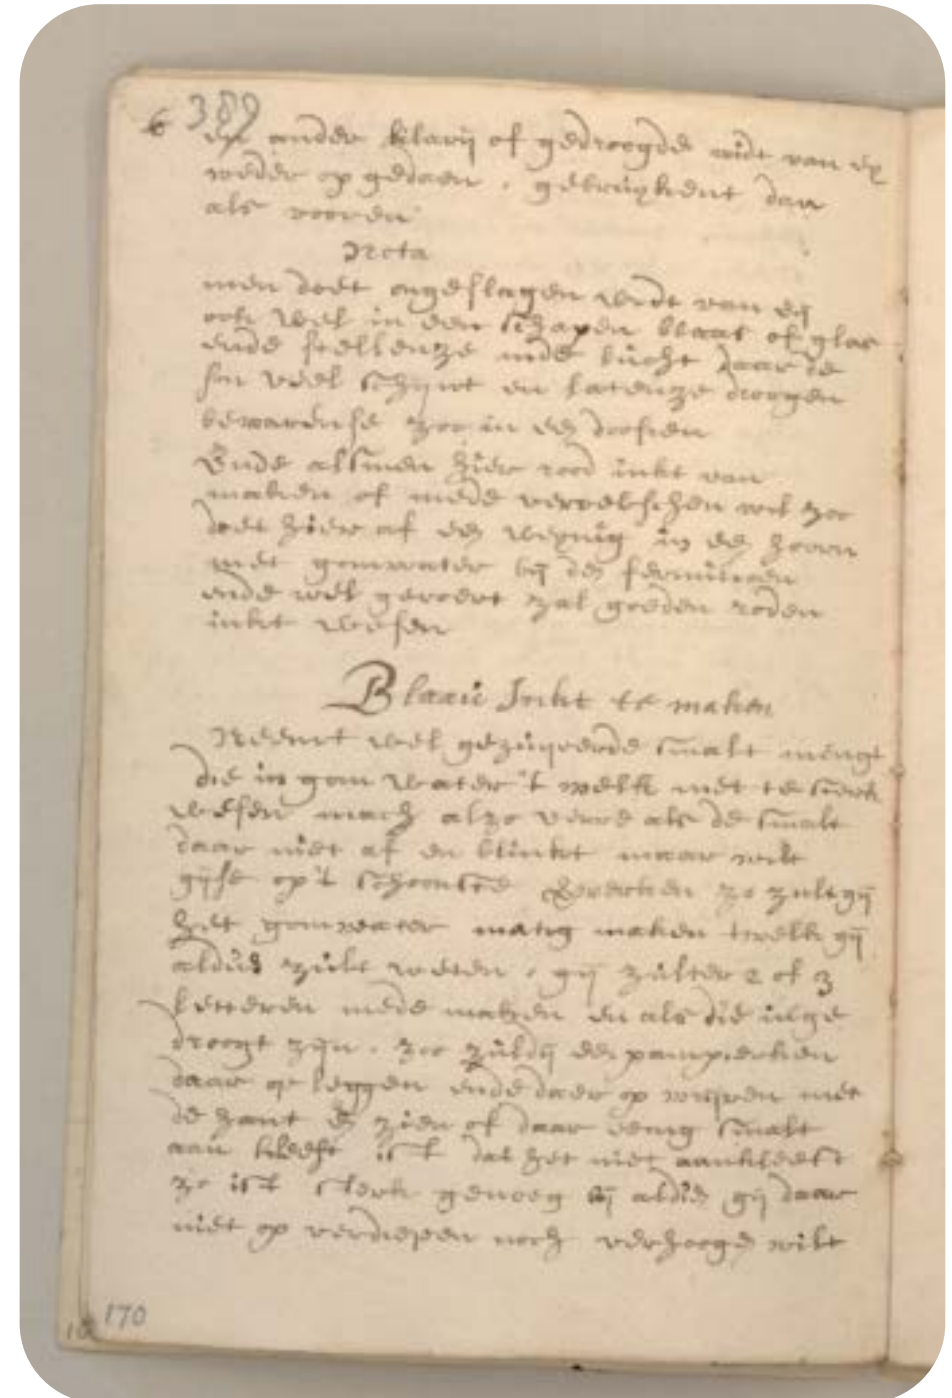 6 389
ander klarij of gedroogde wit van eij
weder op gedaen, gebruijkent dan
als vooren
Nota
men doet ongeslagen wit van eij
ook wel in een schapen blaas of glas
ende stellenze inde lucht daar de
son veel schijnt en latenze droogen
bewarense zoo in een doosien
Ende alsmen hier rood inkt van
maken of mede verwelschen wil zoo
doet hier af een weynig in een hoorn
met gomwater bij den fermilioen
ende wel geroert zal goeden roden
inkt wesen
Blaau Inkt te maken
Neemt wel gezuijverde smalt mengt
die in gom water 't welk niet te sterk
wesen mach alzo verre als de smalt
daar niet af en blinkt maar wilt
gijse op't schoonste werken zo zult gij
het gomwater matig maken twelk gij
aldus zult weten, gij zulter 2 of 3
letteren mede maken en als die wel ge
droogt zijn, zoo zuldij een pampierken
daar op leggen ende daer op wrijven met
de hant en zien of daar eenig smalt
aan kleeft ist dat het niet aankleeft
zo ist sterk genoeg bij aldien gij daar
niet op verdiepen noch verhoogen wilt
170